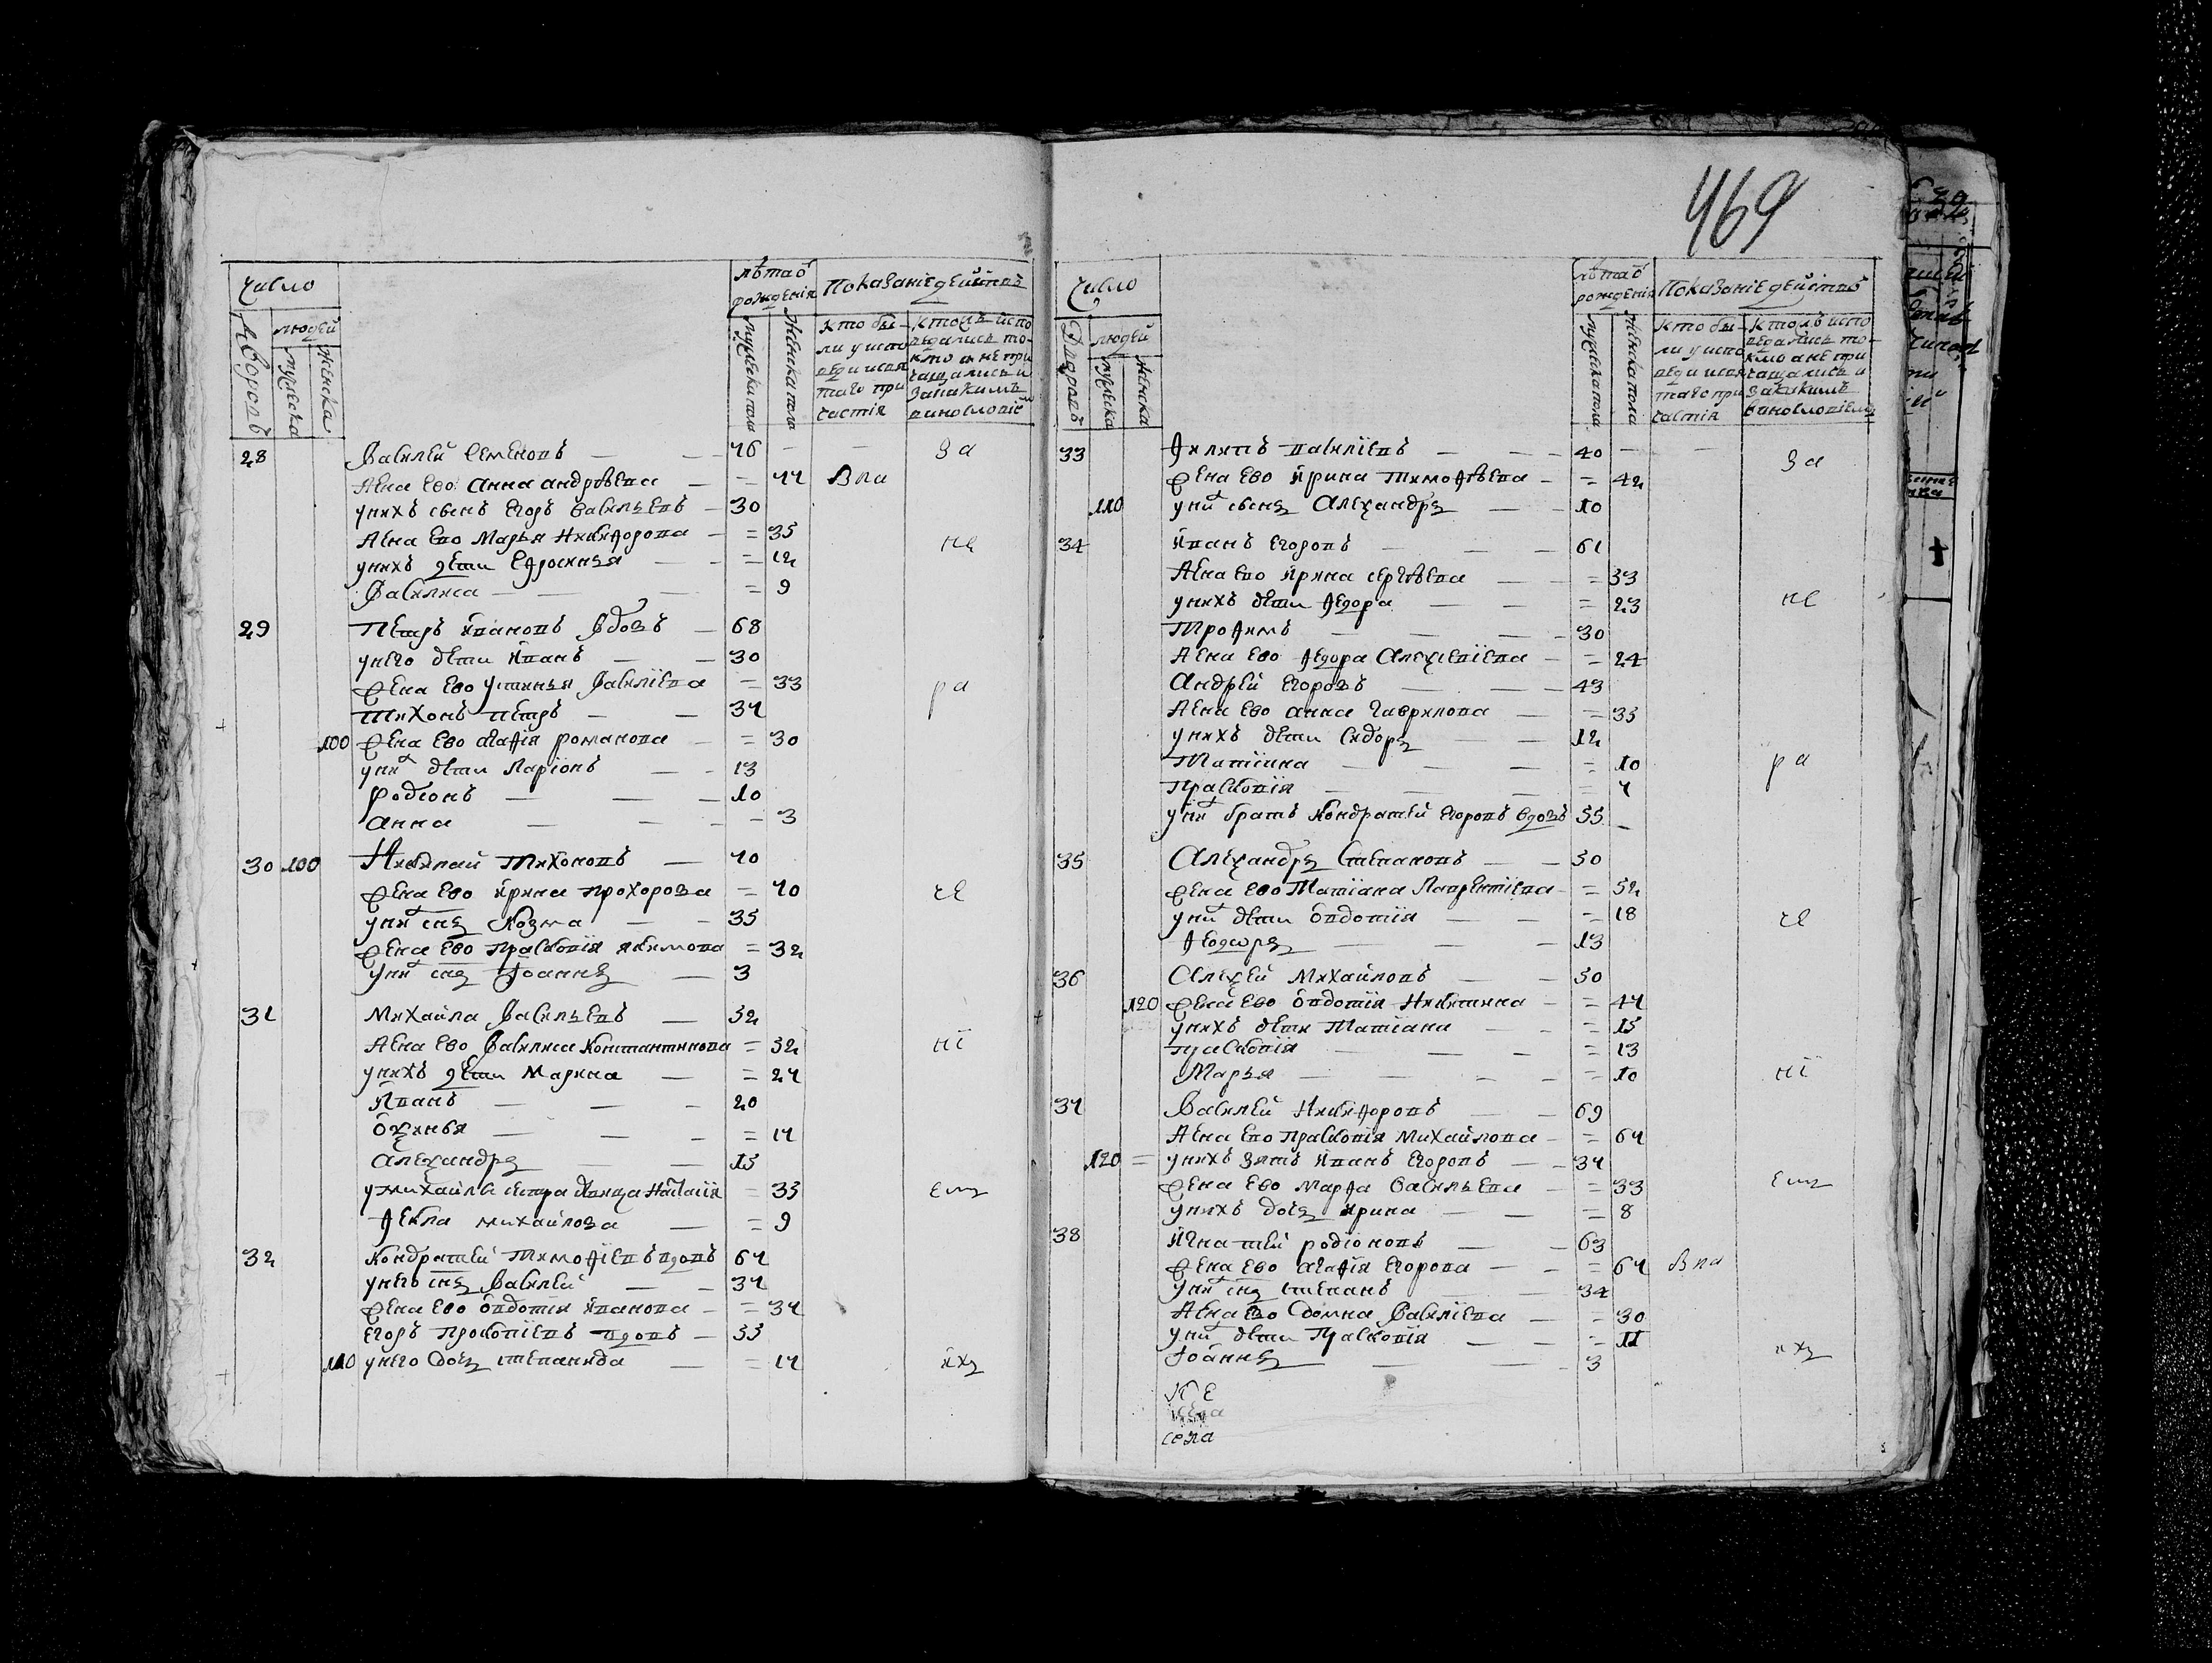 число
лѣта ѿ рожденія
Показаніе действъ
дворовъ
людей
мужеска
женска
мужеска пола
женска пола
кто бы-
ли у испо
вѣди и свя
таго при
частія
кто жъ испо
вѣдались то-
кмо а не при
чащались и
за какимъ
винословіе
28 Василей Семеновъ 46 за
жена ево Анна андрѣева 44 Вла
унихъ сынъ Егоръ Васильевъ 30
жена ево Марья Никифорова 35 не
унихъ дети Ефросинья 12
Василиса 9
29 Петръ Ивановъ вдовъ 68
унего дети Иванъ 30
жена ево Устинья Василіева 33 ра
Тихонъ петръ 34
100 жена ево агафія романова 30
уних дети Ларіонъ 13
Родіонъ 10
анна 3
30 100 Николай Тихоновъ 40
жена ево Ирина прохорова 40 че
уних снъ Козма 35
жена ево Прасковія якимова 32
уних снъ Іоаннъ 3
31 Михайла Васильевъ 52
жена ево Василиса Константинова 52 ні
унихъ дети Марина 24
Иванъ 20
Оксинья 14
Александръ 15
Фекла михайлова 9
32 Кондратей Тимофіевъ вдовъ 64
унего снъ Василей 34
жена ево Овдотія Иванова 34
Егоръ Прокопіевъ вдовъ 53
110 унего дочь степанида 14 ихъ
469
число
лѣта ѿ рожденія
Показаніе действъ
дворовъ
людей
мужеска
женска
мужеска пола
женска пола
кто бы-
ли у испо
вѣди и свя
таго при
частія
кто жъ испо
вѣдались то-
кмо а не при
чащались и
за какимъ
винословіем
33 Филипъ Василіевъ 40 за
жена ево Ирина Тимофѣева 42
110 уних сынъ Александръ 10
34 Иванъ Егоровъ 61
жена ево Ирина сергѣева 33
унихъ дети Федора 23 не
Трофимъ 30
жена ево Федора Алексіевіева 24
Андрей Егоровъ 43
жена ево анна Гаврилова 35
унихъ дети Сидоръ 12
Татіяна 10 ра
Прасковія 4
уних братъ Кондратей Егоровъ вдовъ 55
35 Александръ Степановъ 50
жена ево Татіана Лаврентіева 52
уних дети Овдотія 18 че
Феодоръ 13
36 Алексей Михайловъ 50
120 жена ево Овдотія Никитина 44
унихъ дети Татіана 15
прасковія 13
Марья 10 ні
37 Василей Никифоровъ 69
жена ево Прасковія Михайлова 64
120 унихъ зять Иванъ Егоровъ 34
жена ево Марфа Васильева 33
унихъ дочь Ирина 8
38 Игнатей родіоновъ 63
жена ево агафія Егорова 64 Вла
уних снъ степанъ 34
жена ево Домна Василіева 30
уних дети Прасковія 11
Іоаннъ 3 ихъ
села